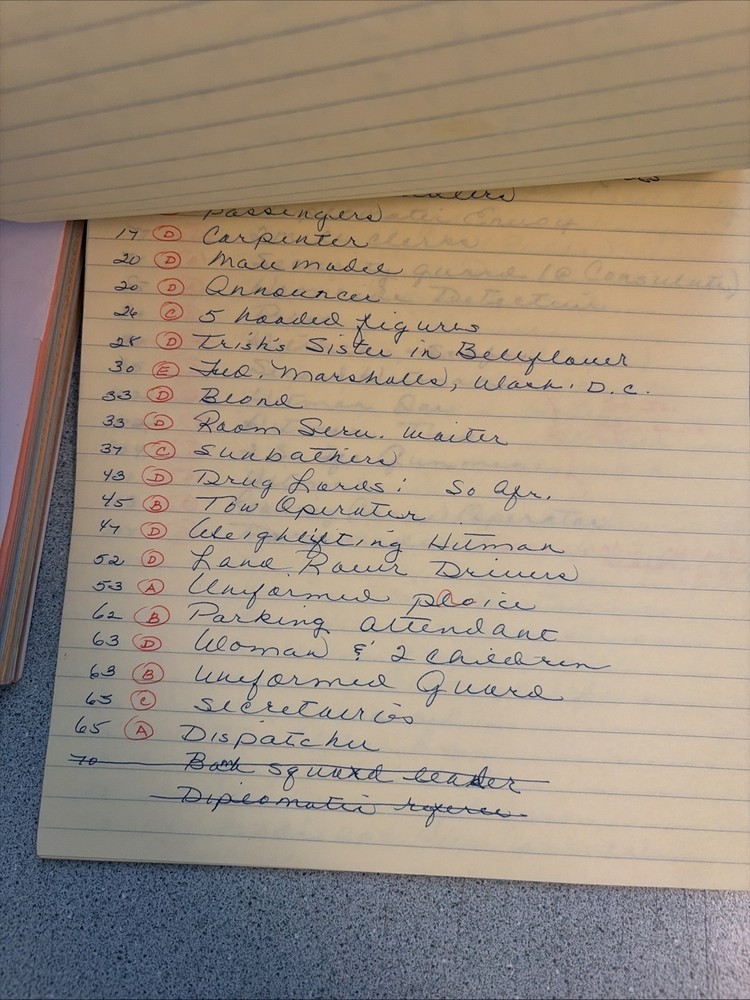 Passengers
19 D Carpenter
20 D Male model
20 D Announcer
26 C 5 hooded figures
28 D Trish's Sister in Bellflower
30 E Fed. Marshalls, Wash. D.C.
33 D Blond
33 D Room Serv. waiter
37 C Sunbathers
43 D Drug Lords: So Afr.
45 B Tow Operator
47 D Weighlifting Hitman
52 D Land Rover Drivers
53 A Uniformed ploice
62 B Parking attendant
63 D Woman & 2 children
63 B Uniformed Guard
65 C Secretaries
65 A Dispatcher
70 Bomb squad leader
Diplomatic